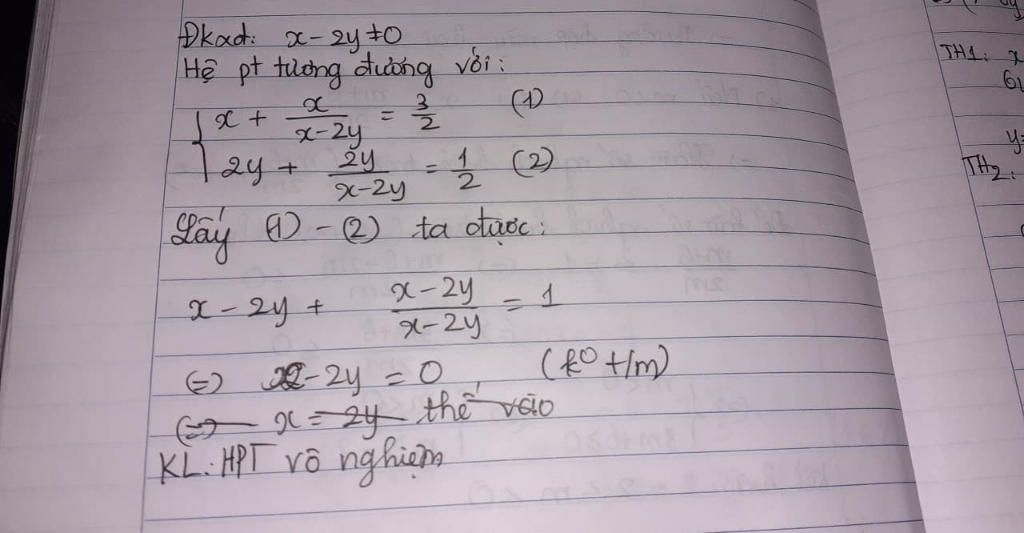 Đkxđ: x - 2y ≠ 0
Hệ pt tương đương với:
x + x/(x-2y) = 3/2 (1)
2y + 2y/(x-2y) = 1/2 (2)
Lấy (1) - (2) ta được:
x - 2y + (x-2y)/(x-2y) = 1
(=) x - 2y = 0 (k⁰ t/m)
(=) x = 2y thế vào
KL: HPT vô nghiệm
TH1: x
y=
TH2: